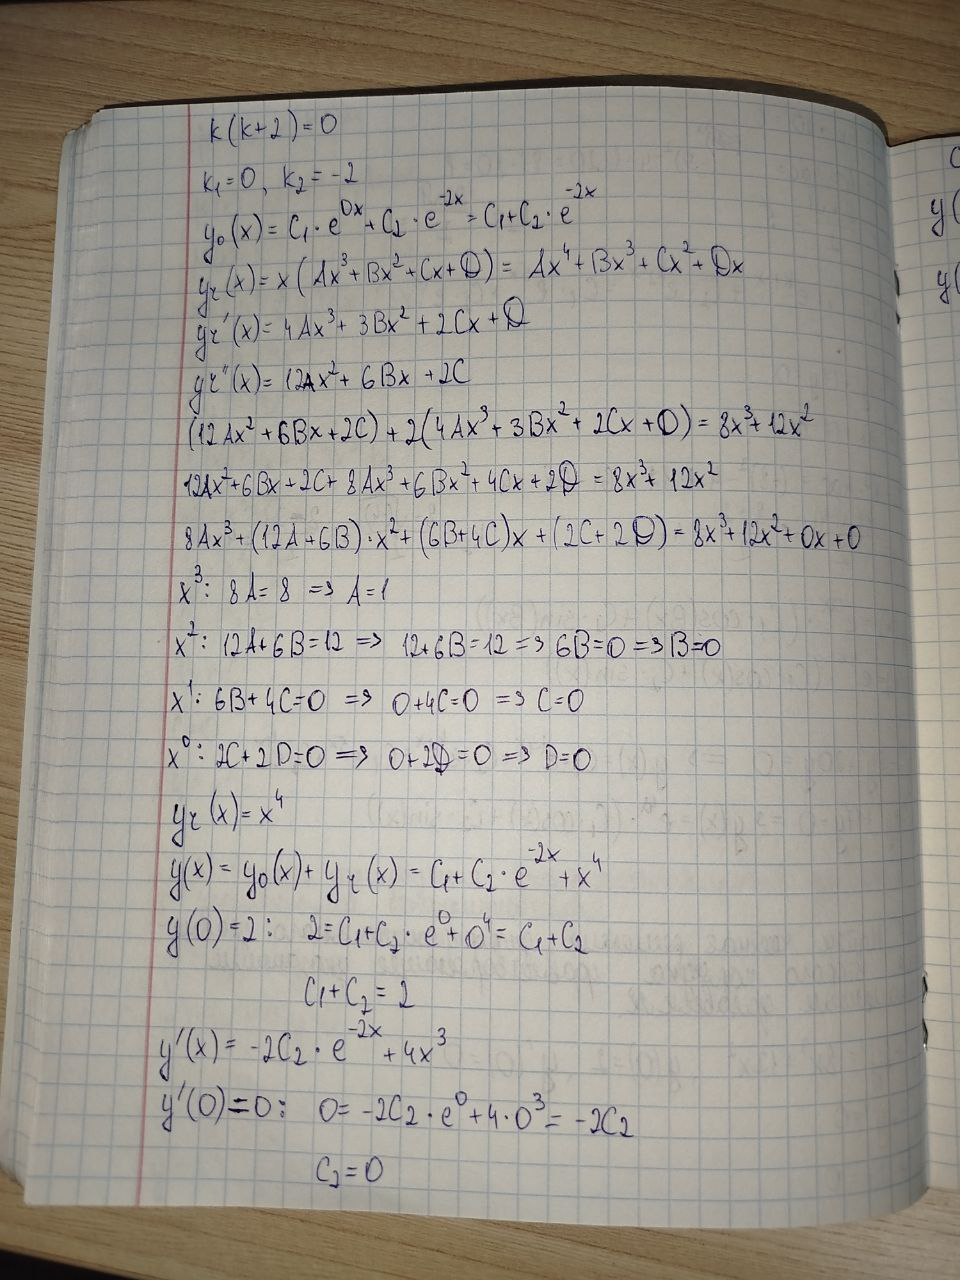 k(k+2)=0
k₁=0, k₂=-2
y₀(x)= C₁·e^{0x}+C₂·e^{-2x}= C₁+C₂·e^{-2x}
yᵣ(x)= x(Ax³+Bx²+Cx+D)= Ax⁴+Bx³+Cx²+Dx
yᵣ'(x)= 4Ax³+3Bx²+2Cx+D
yᵣ''(x)= 12Ax²+6Bx+2C
(12Ax²+6Bx+2C)+2(4Ax³+3Bx²+2Cx+D)=8x³+12x²
12Ax²+6Bx+2C+8Ax³+6Bx²+4Cx+2D=8x³+12x²
8Ax³+(12A+6B)·x²+(6B+4C)x+(2C+2D)=8x³+12x²+0x+0
x³: 8A=8 => A=1
x²: 12A+6B=12 => 12+6B=12 => 6B=0 => B=0
x¹: 6B+4C=0 => 0+4C=0 => C=0
x⁰: 2C+2D=0 => 0+2D=0 => D=0
yᵣ(x)=x⁴
y(x)= y₀(x)+yᵣ(x)=C₁+C₂·e^{-2x}+x⁴
y(0)=2: 2=C₁+C₂·e⁰+0⁴= C₁+C₂
C₁+C₂=2
y'(x)= -2C₂·e^{-2x}+4x³
y'(0)=0: 0= -2C₂·e⁰+4·0³= -2C₂
C₂=0
y(
y(